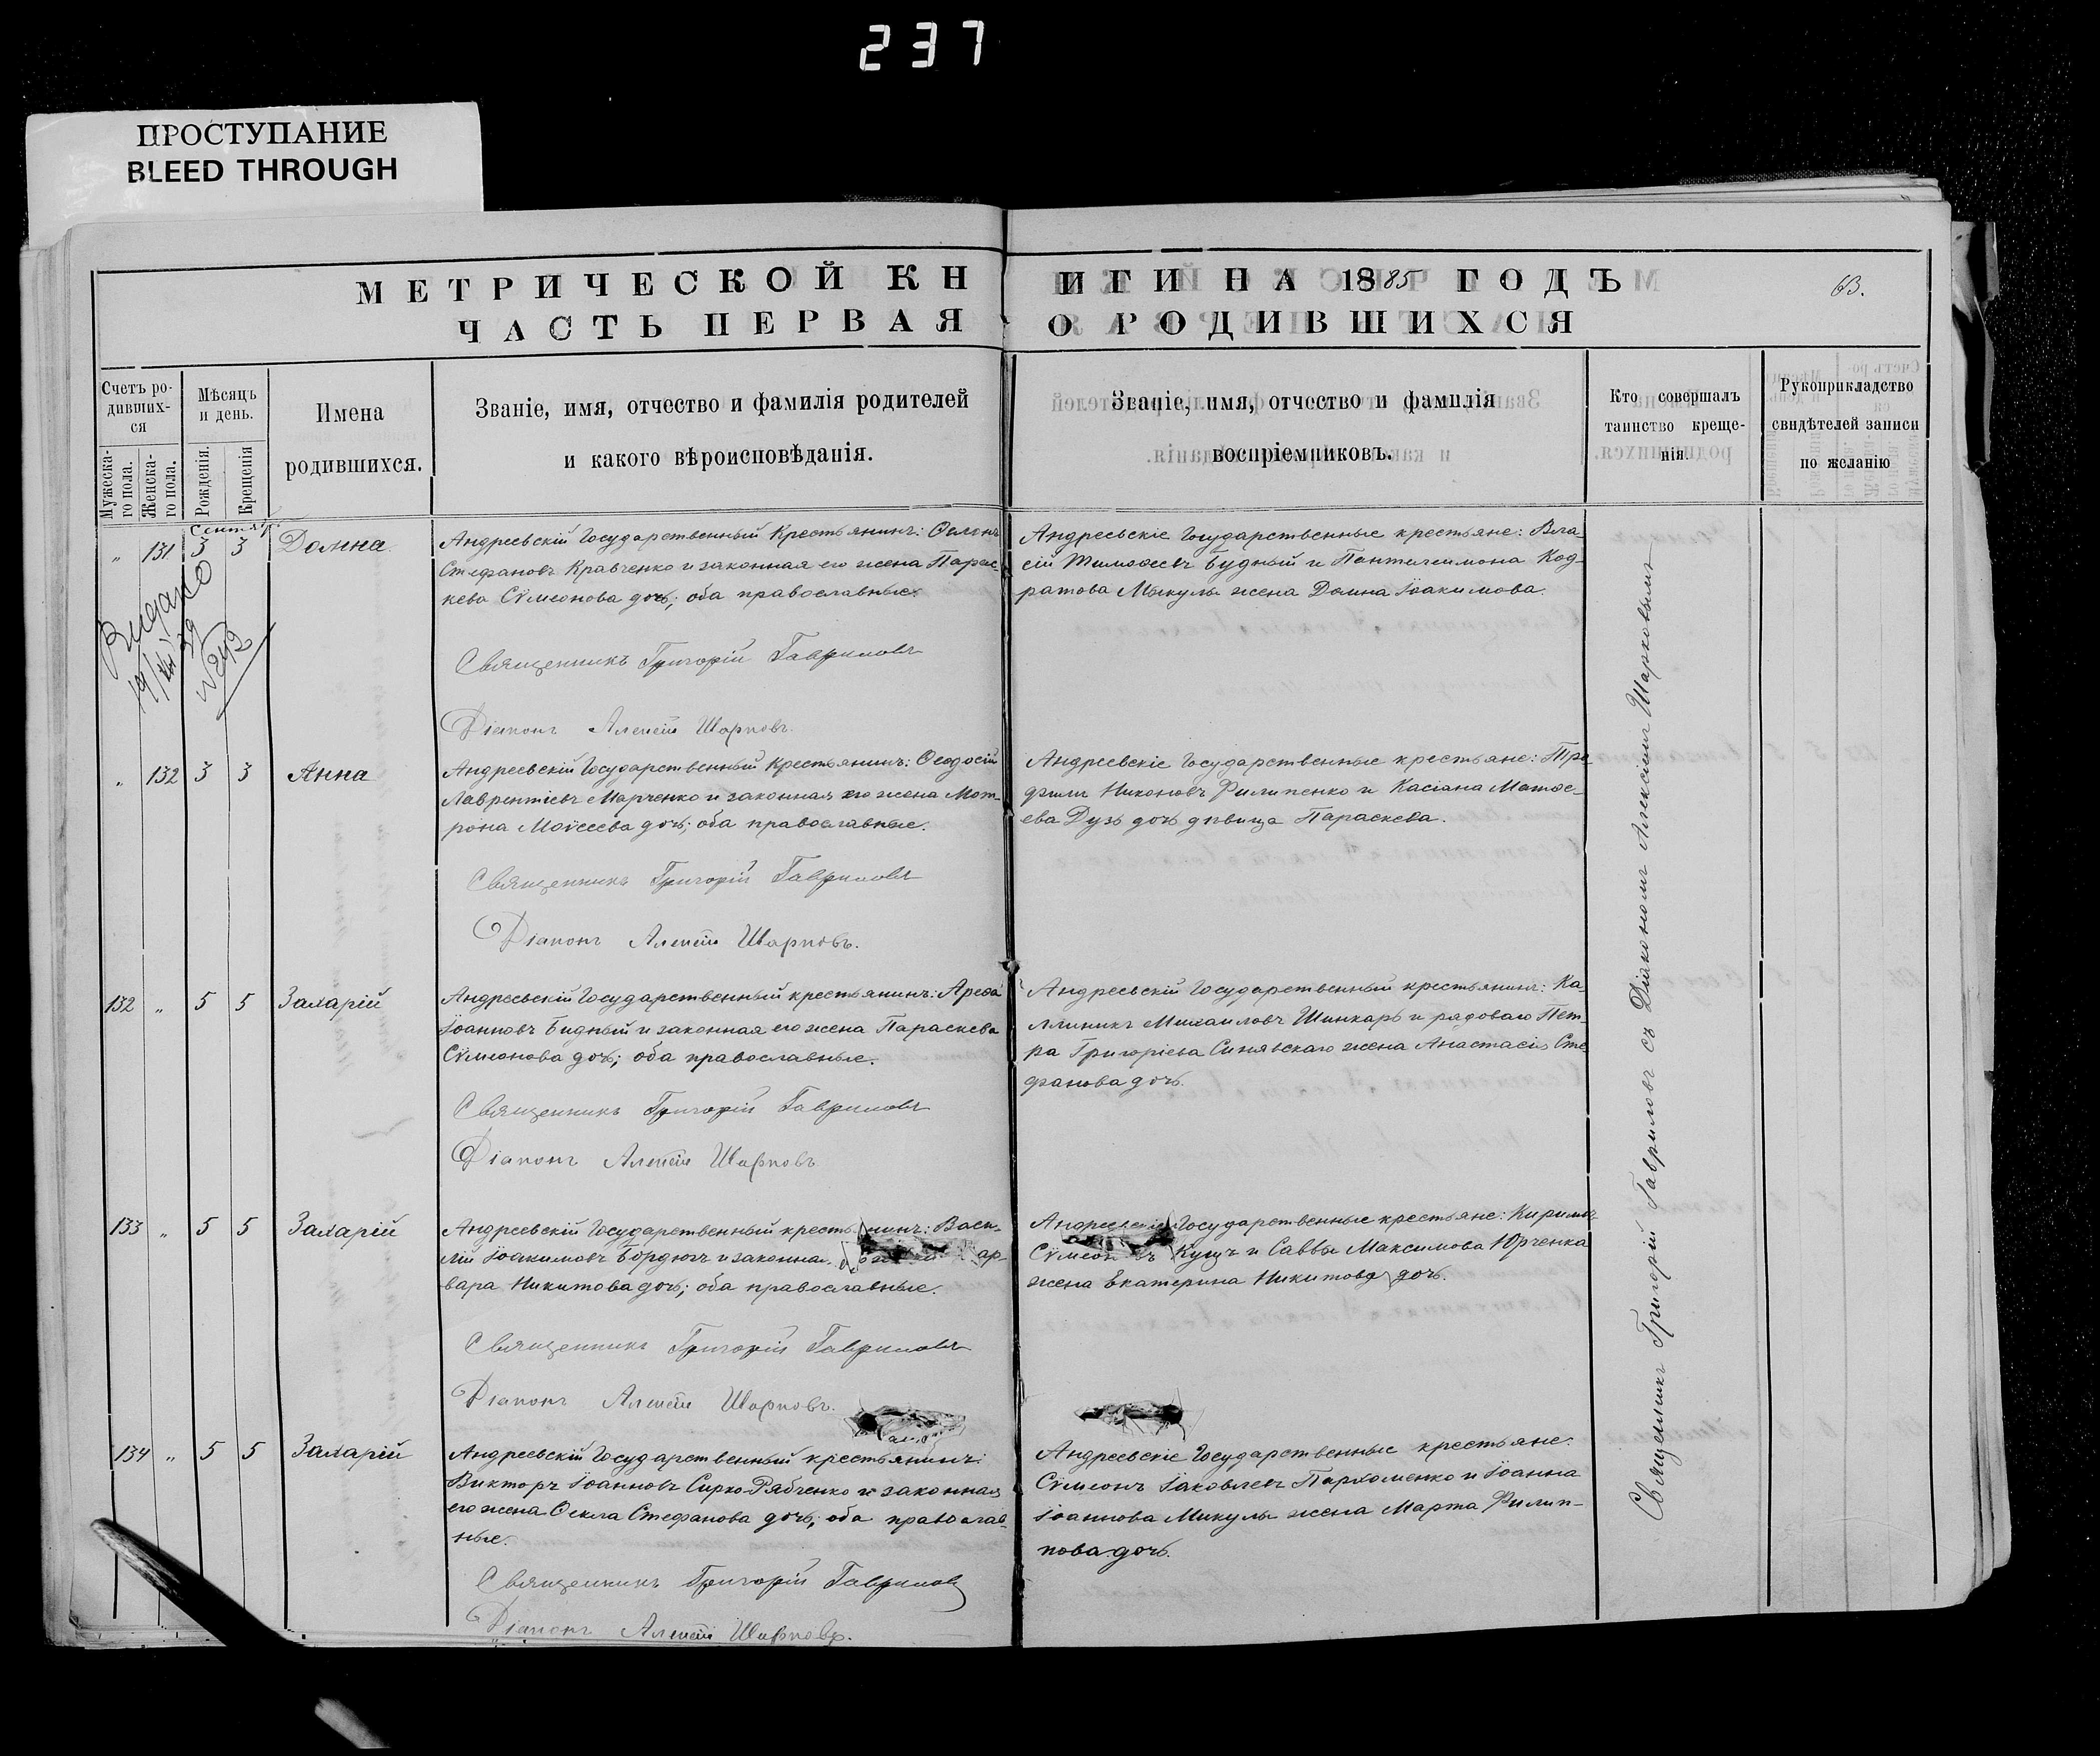 237
ПРОСТУПАНИЕ
BLEED THROUGH
МЕТРИЧЕСКОЙ КНИГИ НА 1885 ГОДЪ
63.
ЧАСТЬ ПЕРВАЯ О РОДИВШИХСЯ
Счетъ ро-
дивших-
ся
Мужеска-
го пола.
Женска-
го пола.
Мѣсяцъ
и день.
Рожденія.
Крещенія
Имена
родившихся.
Званіе, имя, отчество и фамилія родителей
и какого вѣроисповѣданія.
Званіе, имя, отчество и фамилія
воспріемниковъ.
Кто совершалъ
таинство креще-
нія.
Рукоприкладство
свидѣтелей записи
по желанію
Сентяб.
„ 131 3 3 Домна
Андреевскій Государственный Крестьянинъ:
Стефановъ Кравченко и законная его жена Парас-
кева Сѵмеонова дочь; оба православные.
Священникъ Григорій Гавриловъ
Діаконъ Алексій Шарковъ.
Андреевскіе Государственные крестьяне: Вла-
сій Тимофеевъ Будный и Пантелеимона Код-
ратова Микулы жена Домна Іоакимова.
Видано
19/XII 39
N 242
„ 132 3 3 Анна
Андреевскій Государственный Крестьянинъ: Ѳеодосій
Лаврентіевъ Марченко и законная его жена Мот-
рона Моѵсеева дочь; оба православные.
Священникъ Григорій Гавриловъ
Діаконъ Алексій Шарковъ.
Андреевскіе Государственные крестьяне: Тро-
фимъ Никоновъ Филипенко и Касіана Матѳе-
ева Дузь дочь дѣвица Параскева.
132 „ 5 5 Захарій
Андреевскій Государственный крестьянинъ: Арефа
Іоанновъ Бидный и законная его жена Параскева
Сѵмеонова дочь; оба православные.
Священникъ Григорій Гавриловъ
Діаконъ Алексій Шарковъ
Андреевскій Государственный крестьянинъ: Ка-
линикъ Михаиловъ Шинкарь и рядоваго Пет-
ра Григоріева Синявскаго жена Анастасія Сте-
фанова дочь.
133 „ 5 5 Захарій
Андреевскій Государственный крестьянинъ: Васи-
лій Іоакимовъ Бордюгъ и законная
вара Никитова дочь; оба православные.
Священникъ Григорій Гавриловъ
Діаконъ Алексій Шарковъ.
Андреевскіе Государственные крестьяне: Кирилъ
Сѵмеоновъ Куцъ и Саввы Максимова Юрченка
жена Екатерина Никитова дочь.
134 „ 5 5 Захарій
Андреевскій Государственный крестьянинъ:
Викторъ Іоанновъ Сирко-Рябченко и законная
его жена Ѳекла Стефанова дочь; оба православ-
ные.
Священникъ Григорій Гавриловъ
Діаконъ Алексій Шарковъ.
Андреевскіе Государственные крестьяне:
Сѵмеонъ Іаковлевъ Пархоменко и Іоанна
Іоаннова Микулы жена Марта Филип-
пова дочь.
Священникъ Григорій Гавриловъ съ Діакономъ Алексіемъ Шарковымъ